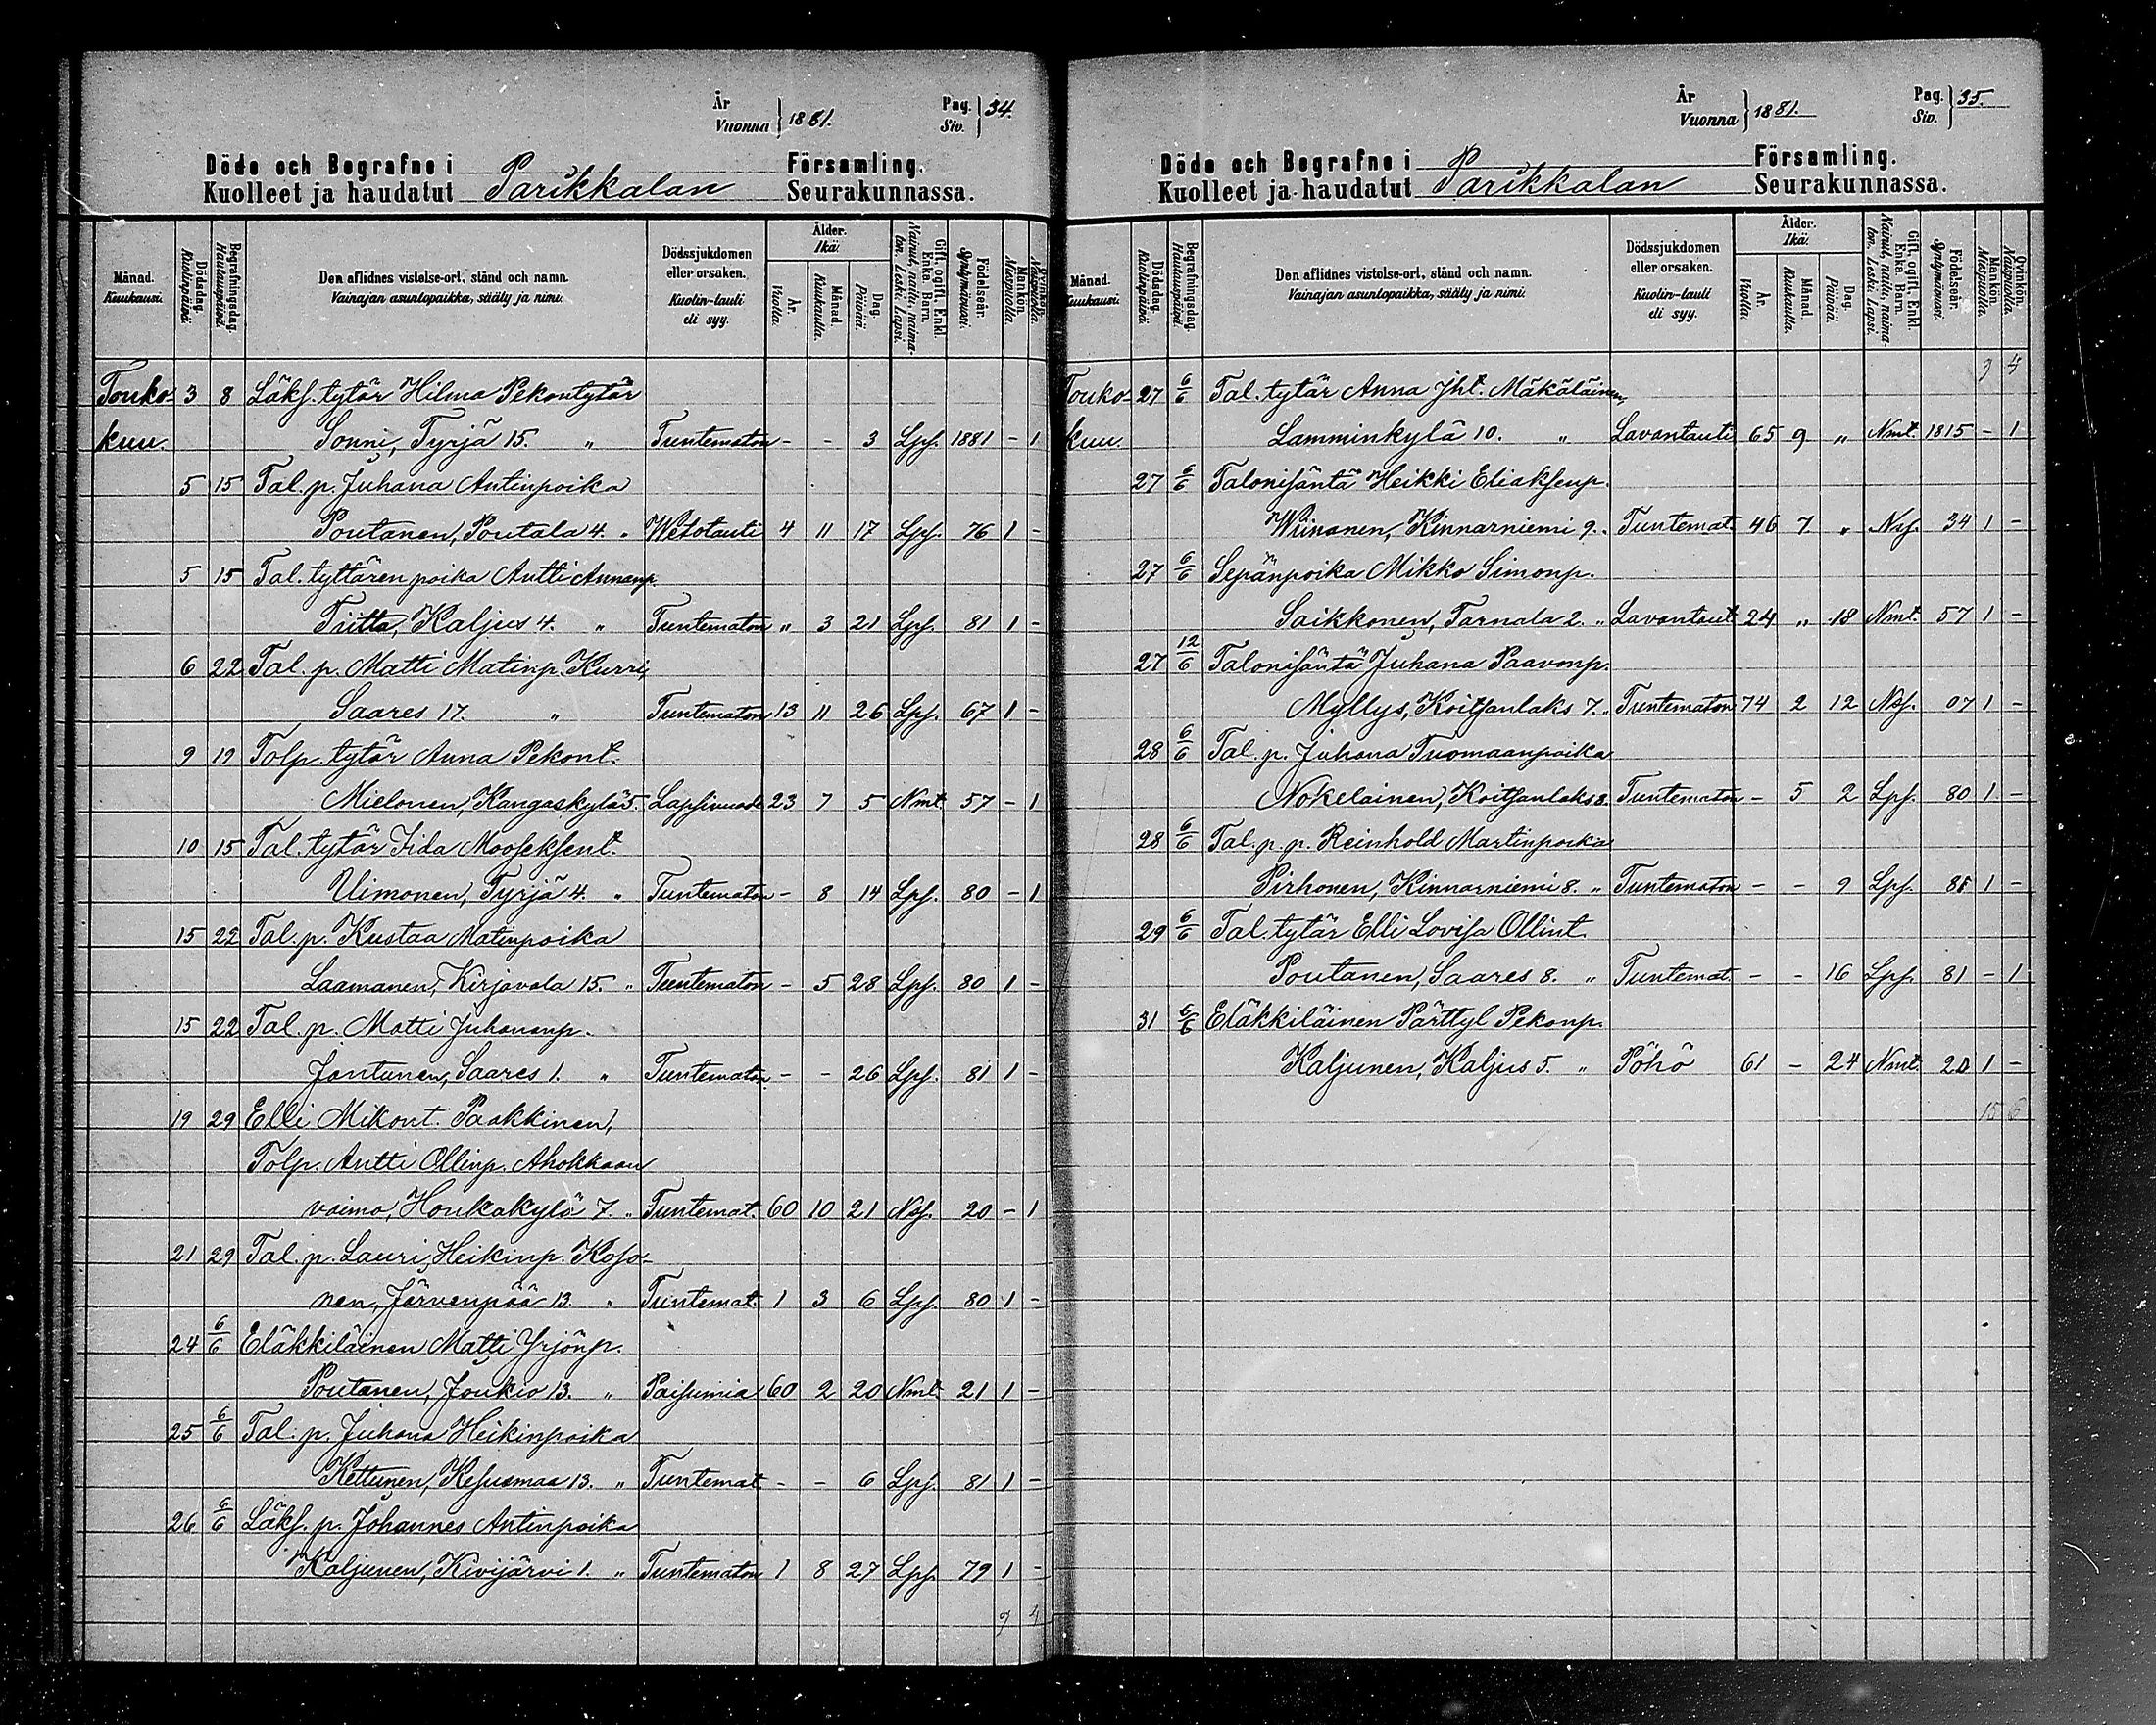 År Vuonna } 1881. Pag. Siv. } 34.
Döde och Begrafne i Församling.
Kuolleet ja haudatut Parikkalan Seurakunnassa.
Månad. Kuukausi. Dödsdag. Kuolinpäivä. Begrafningsdag. Hautauspäivä. Den aflidnes vistelse-ort, stånd och namn. Vainajan asuntopaikka, sääty ja nimi. Dödssjukdomen eller orsaken. Kuolin-tauti eli syy. Ålder. Ikä. År. Vuotta. Månad. Kuukautta. Dag. Päivää. Gift, ogift, Enkl. Enka. Barn. Nainut, naitu, naimaton. Leski. Lapsi. Födelseår. Syntymävuosi. Mankön. Miespuolta. Qvinkön. Naispuolta.
Touko- 3 8 Läks. tytär Hilma Pekontytär
kuu. Sonni, Tyrjä 15. " Tuntematon - - 3 Lps. 1881 - 1
5 15 Tal. p. Juhana Antinpoika
Poutanen, Poutala 4. " Wetotauti 4 11 17 Lps. 76 1 -
5 15 Tal. tyttären poika Antti Annanp.
Tiitta, Kaljus 4. " Tuntematon " 3 21 Lps. 81 1 -
6 22 Tal. p. Matti Matinp. Kurri,
Saares 17. " Tuntematon 13 11 26 Lps. 67 1 -
9 19 Tolp. tytär Anna Pekont.
Mielonen, Kangaskylä 5. Lapsivuode 23 7 5 Nmt. 57 - 1
10 15 Tal. tytär Iida Mooseksent.
Uimonen, Tyrjä 4. " Tuntematon - 8 14 Lps. 80 - 1
15 22 Tal. p. Kustaa Matinpoika
Laamanen, Kirjavala 15. " Tuntematon - 5 28 Lps. 80 1 -
15 22 Tal. p. Matti Juhananp.
Jantunen, Saares 1. " Tuntematon - - 26 Lps. 81 1 -
19 29 Elli Mikont. Paakkinen,
Tolp. Antti Ollinp. Ahokkaan
vaimo, Honkakylä 7. " Tuntemat. 60 10 21 Nas. 20 - 1
21 29 Tal. p. Lauri Heikinp. Koso-
nen, Järvenpää 13. " Tuntemat. 1 3 6 Lps. 80 1 -
24 6/6 Eläkkiläinen Matti Yrjönp.
Poutanen, Joukio 13. " Paisumia 60 2 20 Nmt. 21 1 -
25 6/6 Tal. p. Juhana Heikinpoika
Kettunen, Kesusmaa 13. " Tuntemat. - - 6 Lps. 81 1 -
26 6/6 Läks. p. Johannes Antinpoika
Kaljunen, Kivijärvi 1. " Tuntematon 1 8 27 Lps. 79 1 -
9 4
År Vuonna } 1881. Pag. Siv. } 35.
Döde och Begrafne i Församling.
Kuolleet ja haudatut Parikkalan Seurakunnassa.
Månad. Kuukausi. Dödsdag. Kuolinpäivä. Begrafningsdag. Hautauspäivä. Den aflidnes vistelse-ort, stånd och namn. Vainajan asuntopaikka, sääty ja nimi. Dödssjukdomen eller orsaken. Kuolin-tauti eli syy. Ålder. Ikä. År. Vuotta. Månad. Kuukautta. Dag. Päivää. Gift, ogift, Enkl. Enka. Barn. Nainut, naitu, naimaton. Leski. Lapsi. Födelseår. Syntymävuosi. Mankön. Miespuolta. Qvinkön. Naispuolta.
9 4
Touko- 27 6/6 Tal. tytär Anna Jht. Mäkäläinen,
kuu. Lamminkylä 10. " Lavantauti 65 9 " Nmt. 1815 - 1
27 6/6 Talonisäntä Heikki Eliaksenp.
Wiinanen, Kinnarniemi 9. " Tuntemat. 46 7 " Nas. 34 1 -
27 6/6 Sepänpoika Mikko Simonp.
Saikkonen, Tarnala 2. " Lavantaut. 24 " 18 Nmt. 57 1 -
27 12/6 Talonisäntä Juhana Paavonp.
Myllys, Koitsanlaks 7. " Tuntematon 74 2 12 Nas. 07 1 -
28 6/6 Tal. p. Juhana Tuomaanpoika
Nokelainen, Koitsanlaks 8. Tuntematon - 5 2 Lps. 80 1 -
28 6/6 Tal. p. p. Reinhold Martinpoika
Pirhonen, Kinnarniemi 8. " Tuntematon - - 9 Lps. 81 1 -
29 6/6 Tal. tytär Elli Lovisa Ollint.
Poutanen, Saares 8. " Tuntemat. - - 16 Lps. 81 - 1
31 6/6 Eläkkiläinen Pärttyl Pekonp.
Kaljunen, Kaljus 5. " Pöhö 61 - 24 Nmt. 20 1 -
15 6